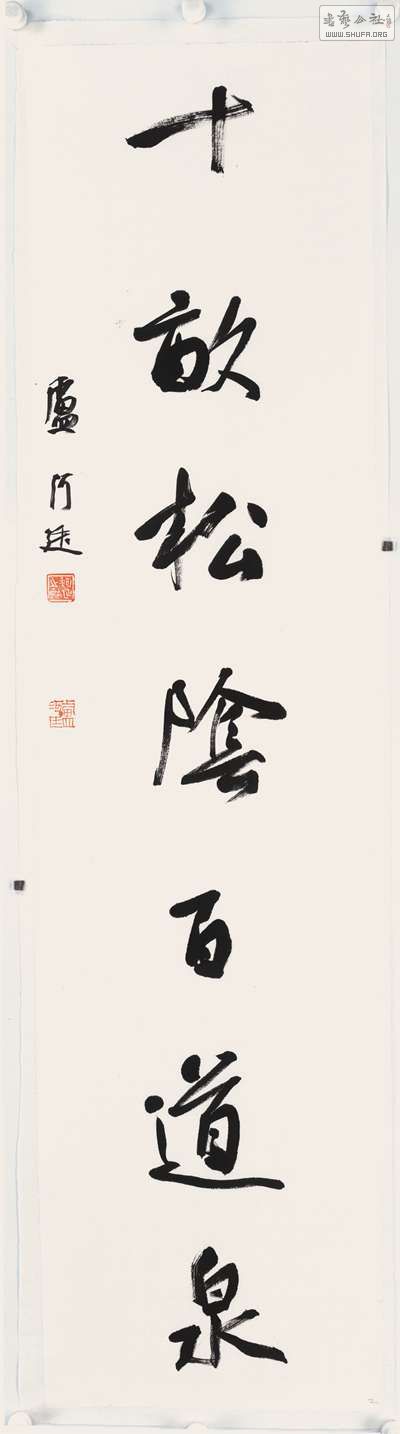 十畝松陰百道泉
盧
書藝公社
WWW.SHUFA.ORG